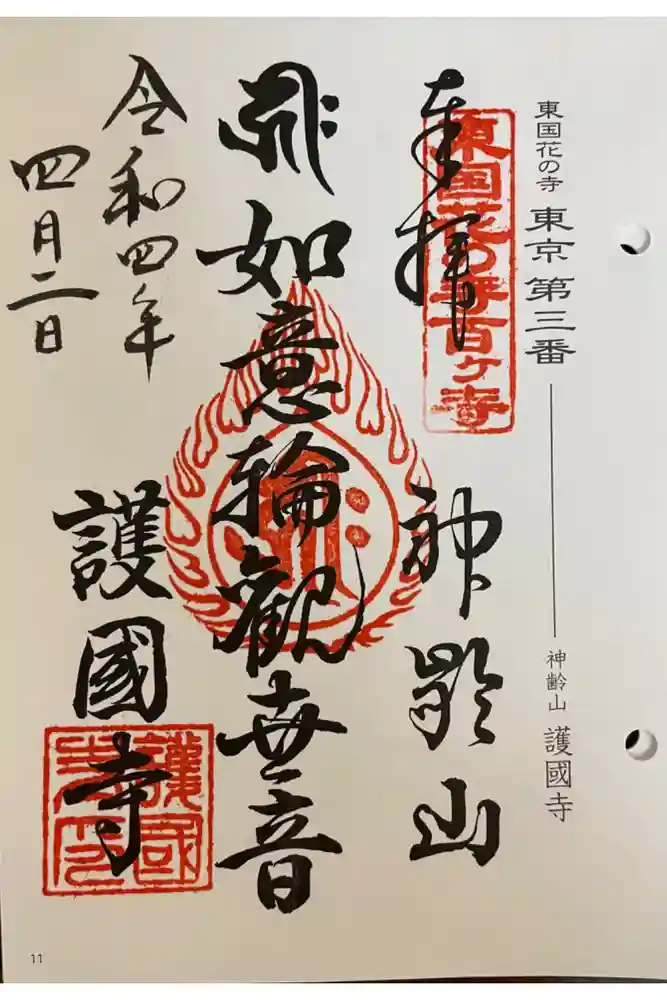 東国花の寺 東京 第三番 神齢山 護國寺
東国花の寺百ヶ寺
奉拝 神齢山
如意輪觀世音
令和四年
四月二日
護國寺
11